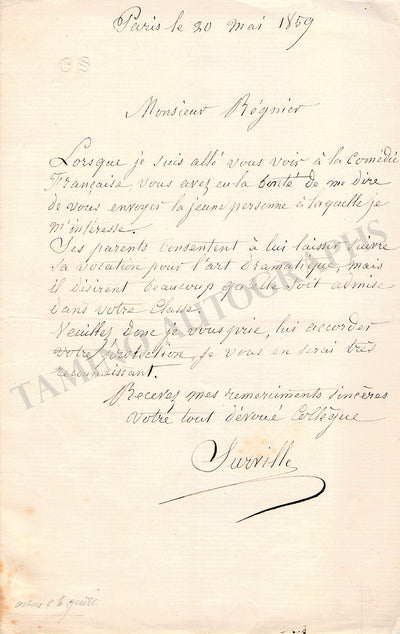 Paris le 20 mai 1859
GS
Monsieur Régnier
Lorsque je suis allé vous voir à la Comédie
Française, vous avez eu la bonté de me dire
de vous envoyer la jeune personne à laquelle je
m'intéresse.
Ses parents consentent à lui laisser suivre
sa vocation pour l'art dramatique, mais
il désirent beaucoup qu'elle soit admise
dans votre Classe.
Veuillez donc je vous prie, lui accorder
votre protection, je vous en serai très
reconnaissant.
Recevez mes remerciments sincères
Votre tout dévoué Collègue
Surville
TAMINO AUTOGRAPHS